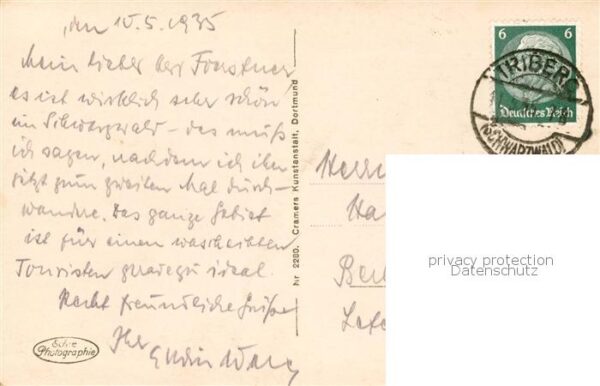 den 10.5.1935
Mein lieber Herr
es ist wirklich sehr schön
im Schwarzwald – das muß
ich sagen, nachdem ich ihn
jetzt zum zweiten Mal durch-
wandre. Das ganze Gebiet
ist für einen waschechten
Touristen geradezu ideal.
Recht freundliche Grüße
Ihr
Echte
Photographie
Nr 2280. Cramers Kunstanstalt, Dortmund
6 6
Deutsches Reich
TRIBERG
(SCHWARZWALD)
Herrn
Ha
Ber
privacy protection
Datenschutz